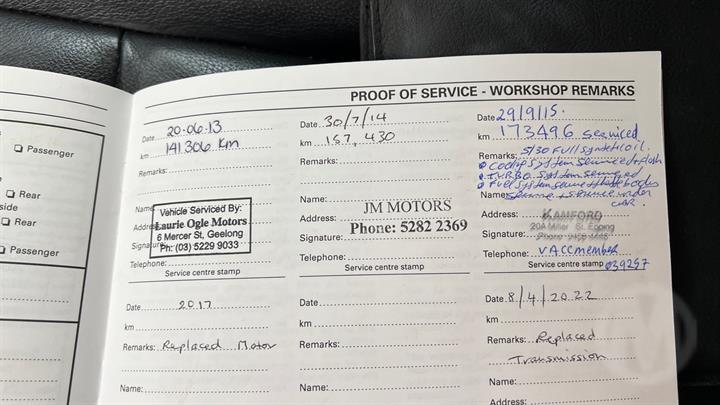 Passenger
Rear
side
Rear
Passenger
PROOF OF SERVICE - WORKSHOP REMARKS
Date 20·06·13
km 141306 km
Remarks:
Name:
Address:
Signature:
Telephone:
Vehicle Serviced By:
Laurie Ogle Motors
6 Mercer St, Geelong
Ph: (03) 5229 9033
Service centre stamp
Date 30/7/14
km 157,430
Remarks:
Name:
Address:
JM MOTORS
Signature:
Phone: 5282 2369
Telephone:
Service centre stamp
Date 29/9/15.
km 173496 serviced
5/30 Full Synthetic oil.
Remarks: Cooling System serviced + flush
TURBO System serviced
Fuel system serviced
Name:
service under
car.
Address: KAMFORD
20A Miller St. Epping
Signature: Phone
Telephone: VACC member
Service centre stamp 039257
Date 2017
km
Remarks: Replaced Motor
Name:
Date
km
Remarks:
Name:
Date 8/4/2022
km
Remarks: Replaced
Transmission
Name:
Address: